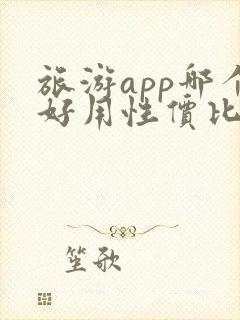 旅游app哪个
好用性價比
笙歌